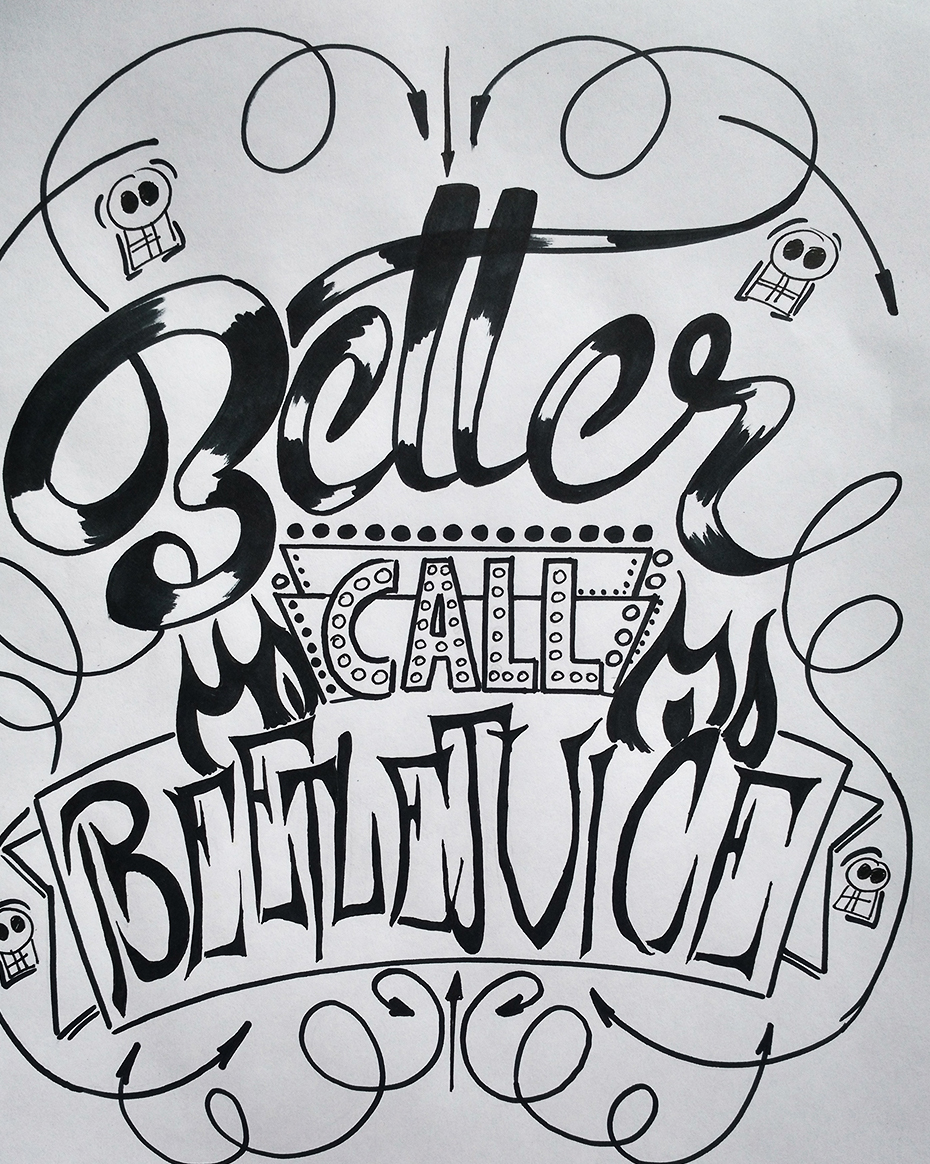 Better
CALL
BEETLEJUICE